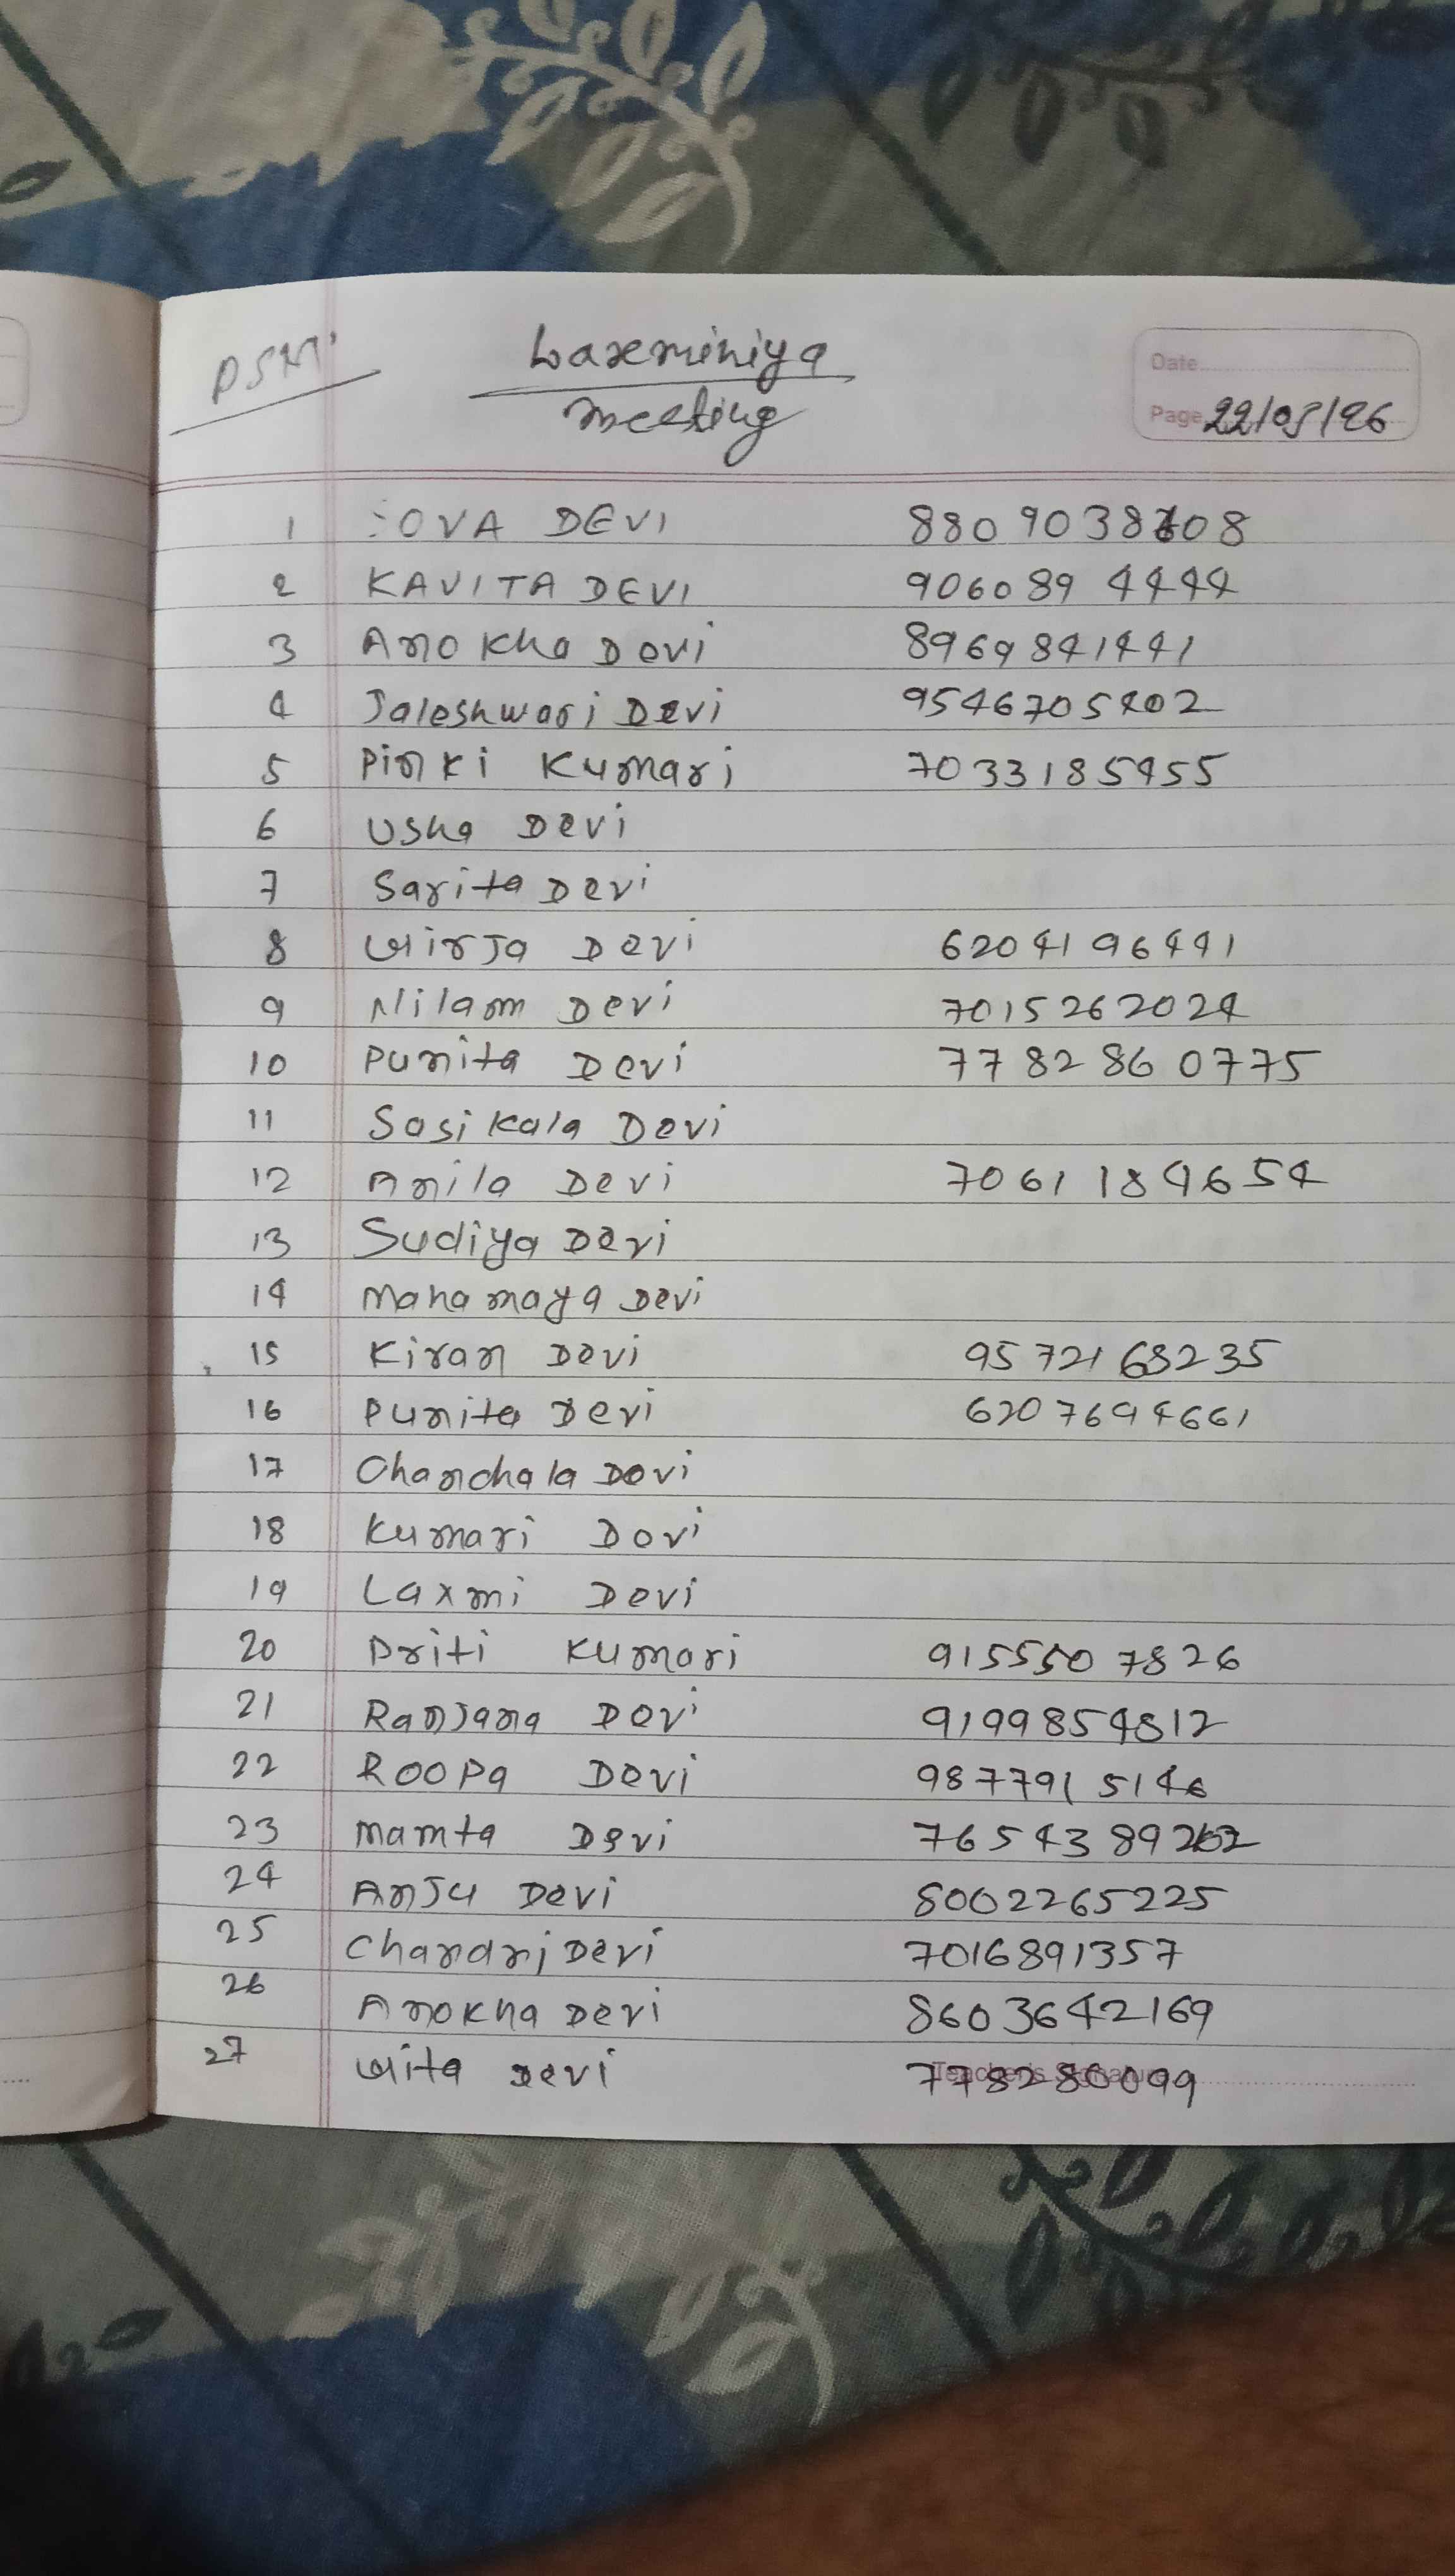 meeting
Date
Page 22/05/26
1 OVA DEVI 8809038608
2 KAVITA DEVI 9060894444
3 Anokha Devi 8969841441
4 Jaleshwari Devi 9546705402
5 Pinki Kumari 7033185455
6 Usha Devi
7 Sarita Devi
8 Girja Devi 6204196441
9 Nilam Devi 7015262024
10 Punita Devi 77 82 86 0775
11 Sosikala Devi
12 Anila Devi 70611184654
13 Sudiya Devi
14 Mahamaya Devi
15 Kiran Devi 9572163235
16 Punita Devi 6207694661
17 Chanchala Devi
18 Kumari Devi
19 Laxmi Devi
20 Priti Kumari 9155507826
21 Ranjana Devi 9199854812
22 Roopa Devi 9877915146
23 Mamta Devi
24 Anju Devi 8002265225
25 Chandni Devi 7016891357
26 Anokha Devi 8603642169
27 Gita Devi 778280099
Teacher's Signature